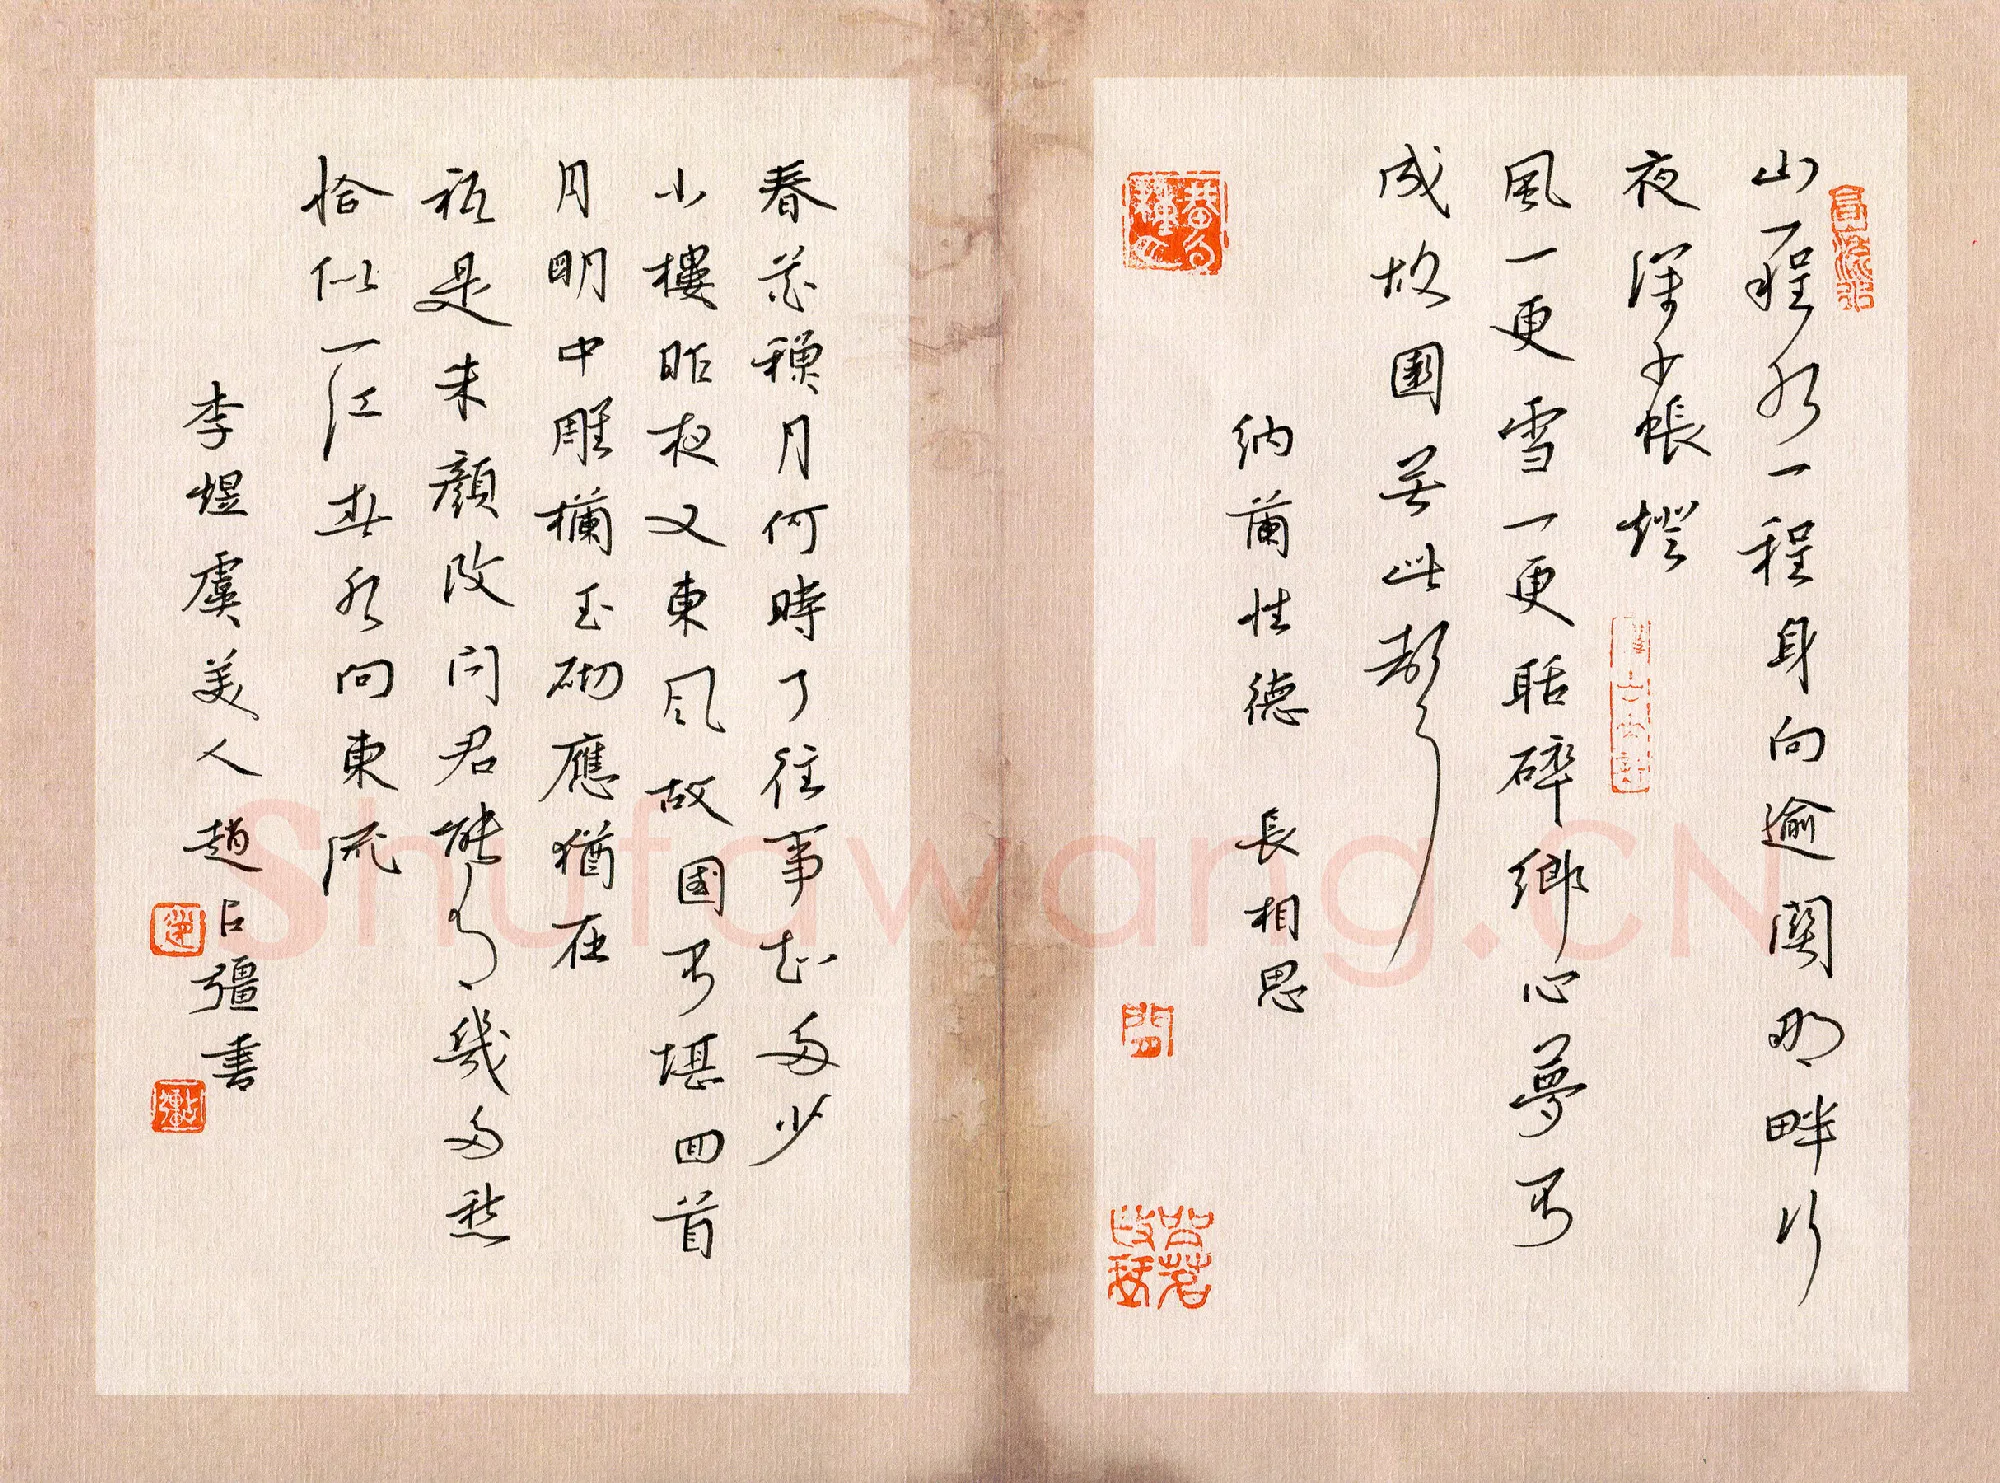 山一程水一程身向逾關那畔行
夜深千帳燈
風一更雪一更聒碎鄉心夢不
成故園無此聲
納蘭性德 長相思
春花秋月何時了往事知多少
小樓昨夜又東風故國不堪回首
月明中雕欄玉砌應猶在
祇是朱顏改問君能有幾多愁
恰似一江春水向東流
李煜虞美人趙占彊書
Shufawang.CN